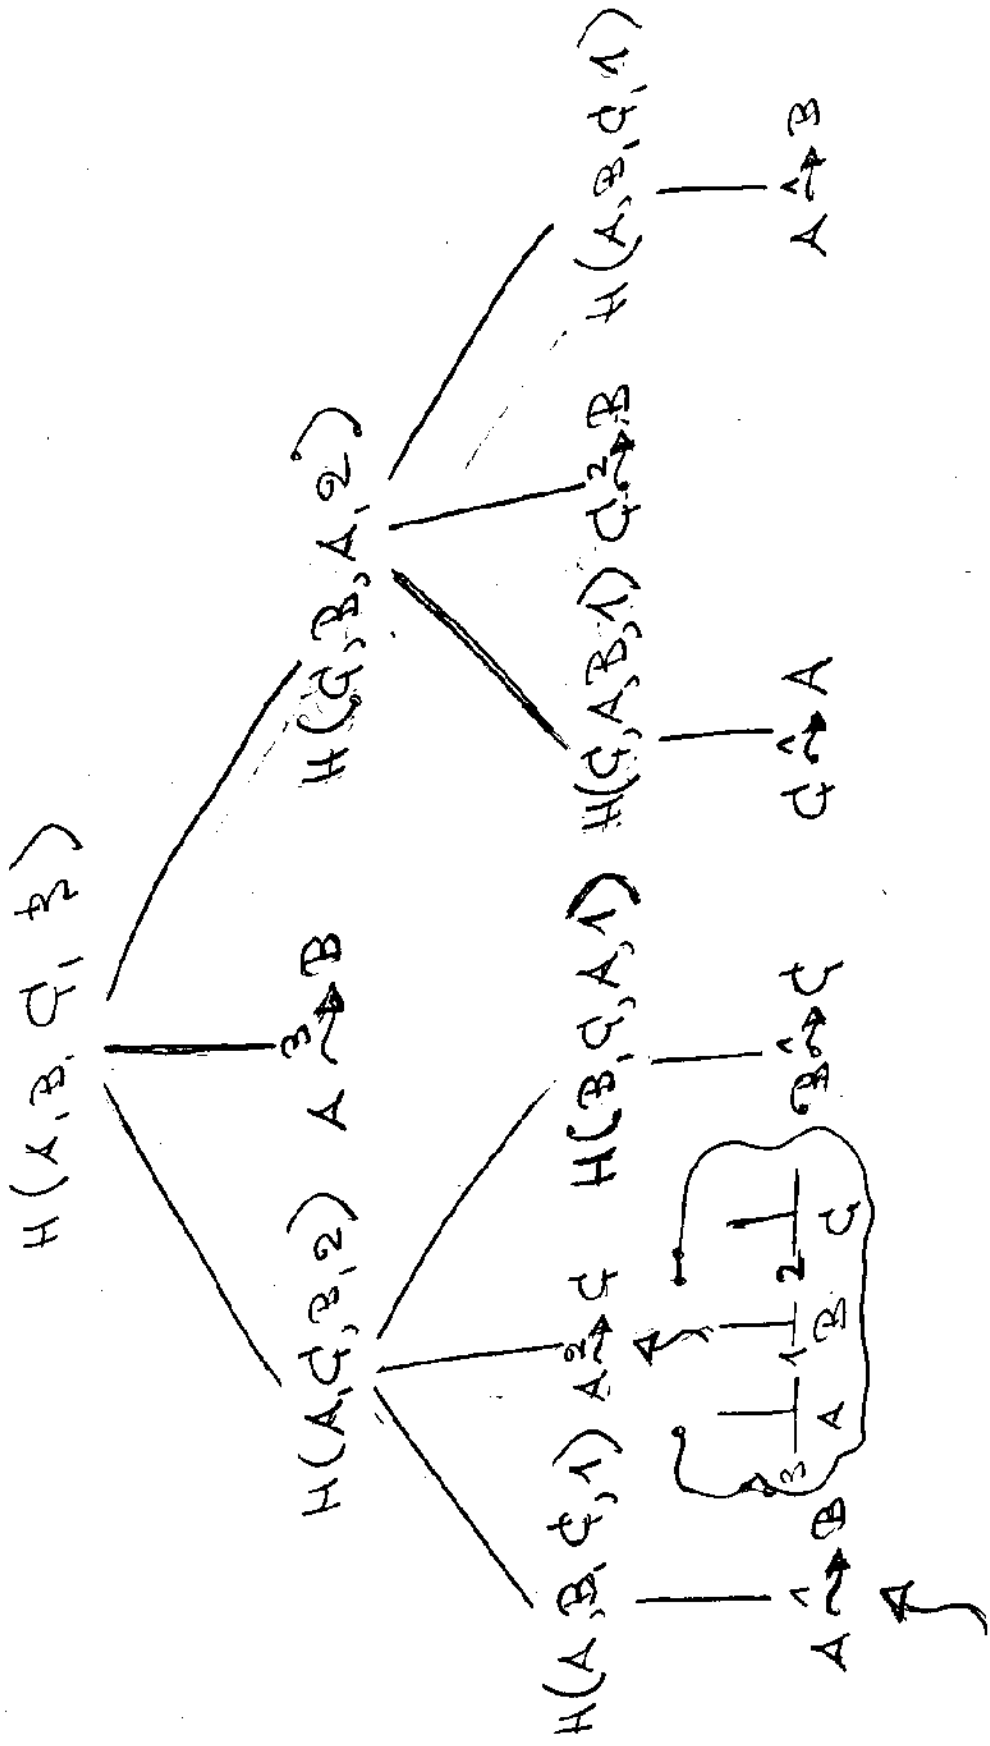 H(A,B,C,3)
H(A,C,B,2) A 3→ B H(C,B,A,2)
H(A,B,C,1) A 2→ C H(B,C,A,1) H(C,A,B,1) C 2→ B H(A,B,C,1)
3 1 2
A B C
A 1→ B B 1→ C C 1→ A A 1→ B